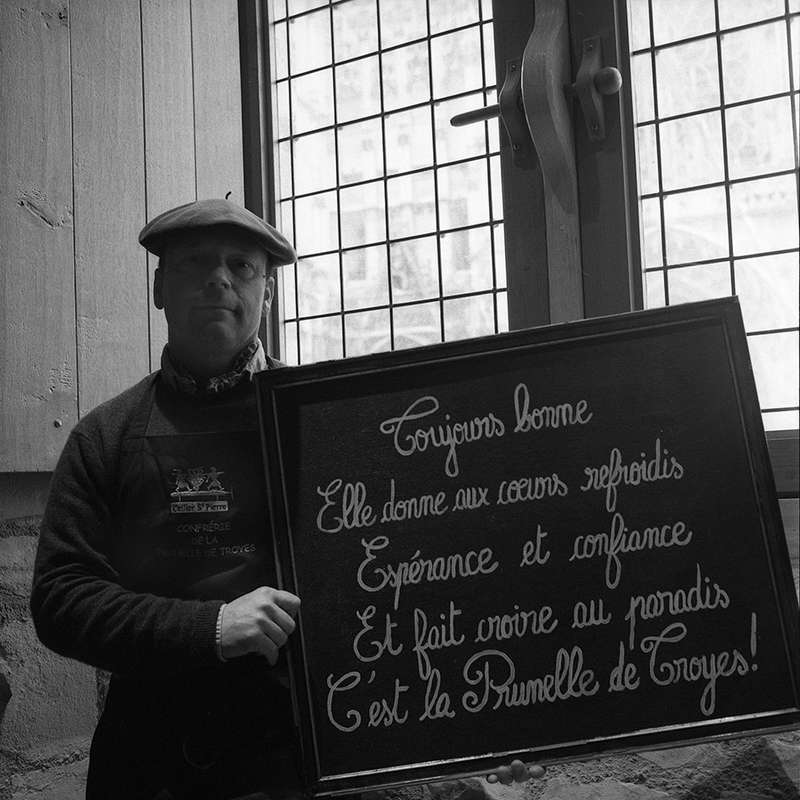 Cellier St Pierre
CONFRÉRIE
DE LA
PRUNELLE DE TROYES
Toujours bonne
Elle donne aux coeurs refroidis
Espérance et confiance
Et fait croire au paradis
C'est la Prunelle de Troyes!